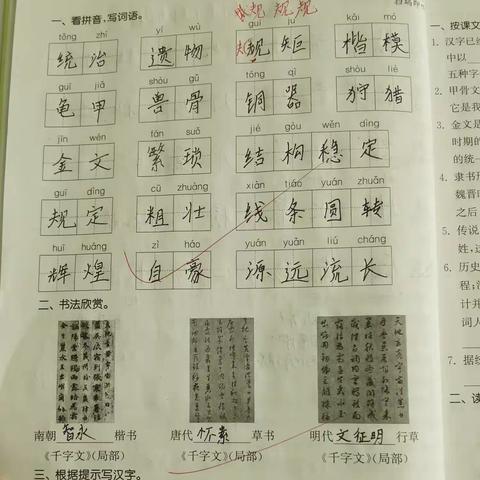 规 规 规
一、看拼音,写词语。
tǒng zhì yí wù guī jǔ kǎi mó
统治 遗物 规矩 楷模
guī jiǎ shòu gǔ tóng qì shòu liè
龟甲 兽骨 铜器 狩猎
jīn wén fán suǒ jié gòu wěn dìng
金文 繁琐 结构稳定
guī dìng cū zhuàng xiàn tiáo yuán zhuǎn
规定 粗壮 线条圆转
huī huáng zì háo yuán yuǎn liú cháng
辉煌 自豪 源远流长
二、书法欣赏。
南朝 智永 楷书 唐代 怀素 草书 明代 文征明 行草
《千字文》(局部) 《千字文》(局部) 《千字文》(局部)
三、根据提示写汉字。
一、按课文
1. 汉字已经
中以
五种字
2. 甲骨文
它是我
3. 金文是
时期的
的统一
4. 隶书形
魏晋时
之后
5. 传说
姓,这
6. 历史
程;
计并
词人
7. 据
二、读